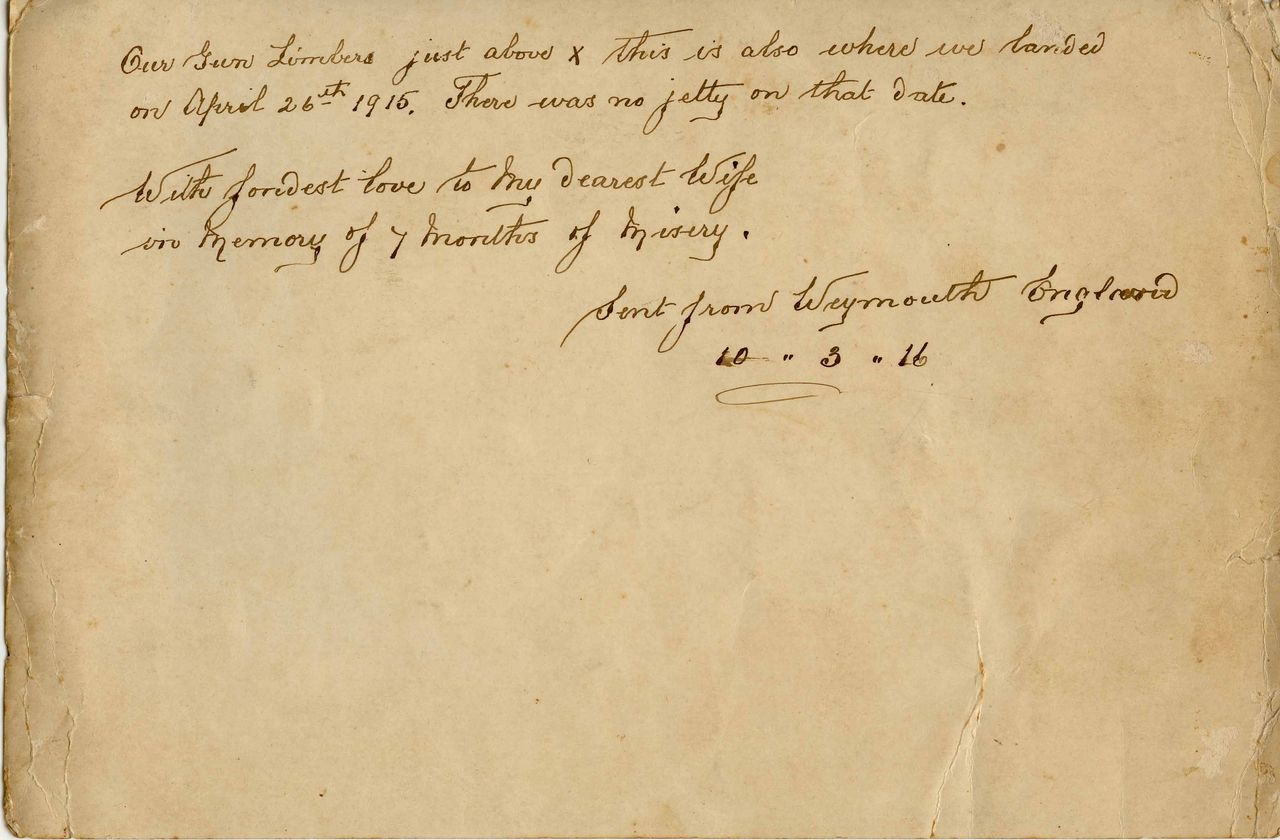 Our Gun Limbers just above X this is also where we landed
on April 26th 1915. There was no jetty on that date.
With fondest love to My dearest Wife
in Memory of 7 Months of Misery.
Sent from Weymouth England
10 " 3 " 16